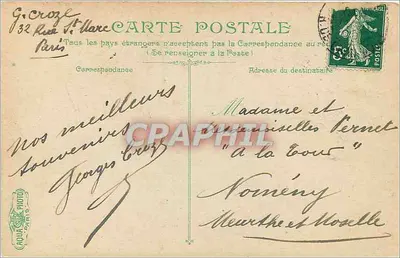 G. Croze
32 Rue St Marc
Paris
CARTE POSTALE
Tous les pays étrangers n'acceptent pas la Correspondance au recto
(Se renseigner à la Poste)
Correspondance
Adresse du destinataire
Nos meilleurs
souvenirs
Georges Croze
Madame et
Demoiselles Pernet
"A la Tour"
Nomény
Meurthe et Moselle
CRAPHIL
AQUA PHOTO
5c
POSTES